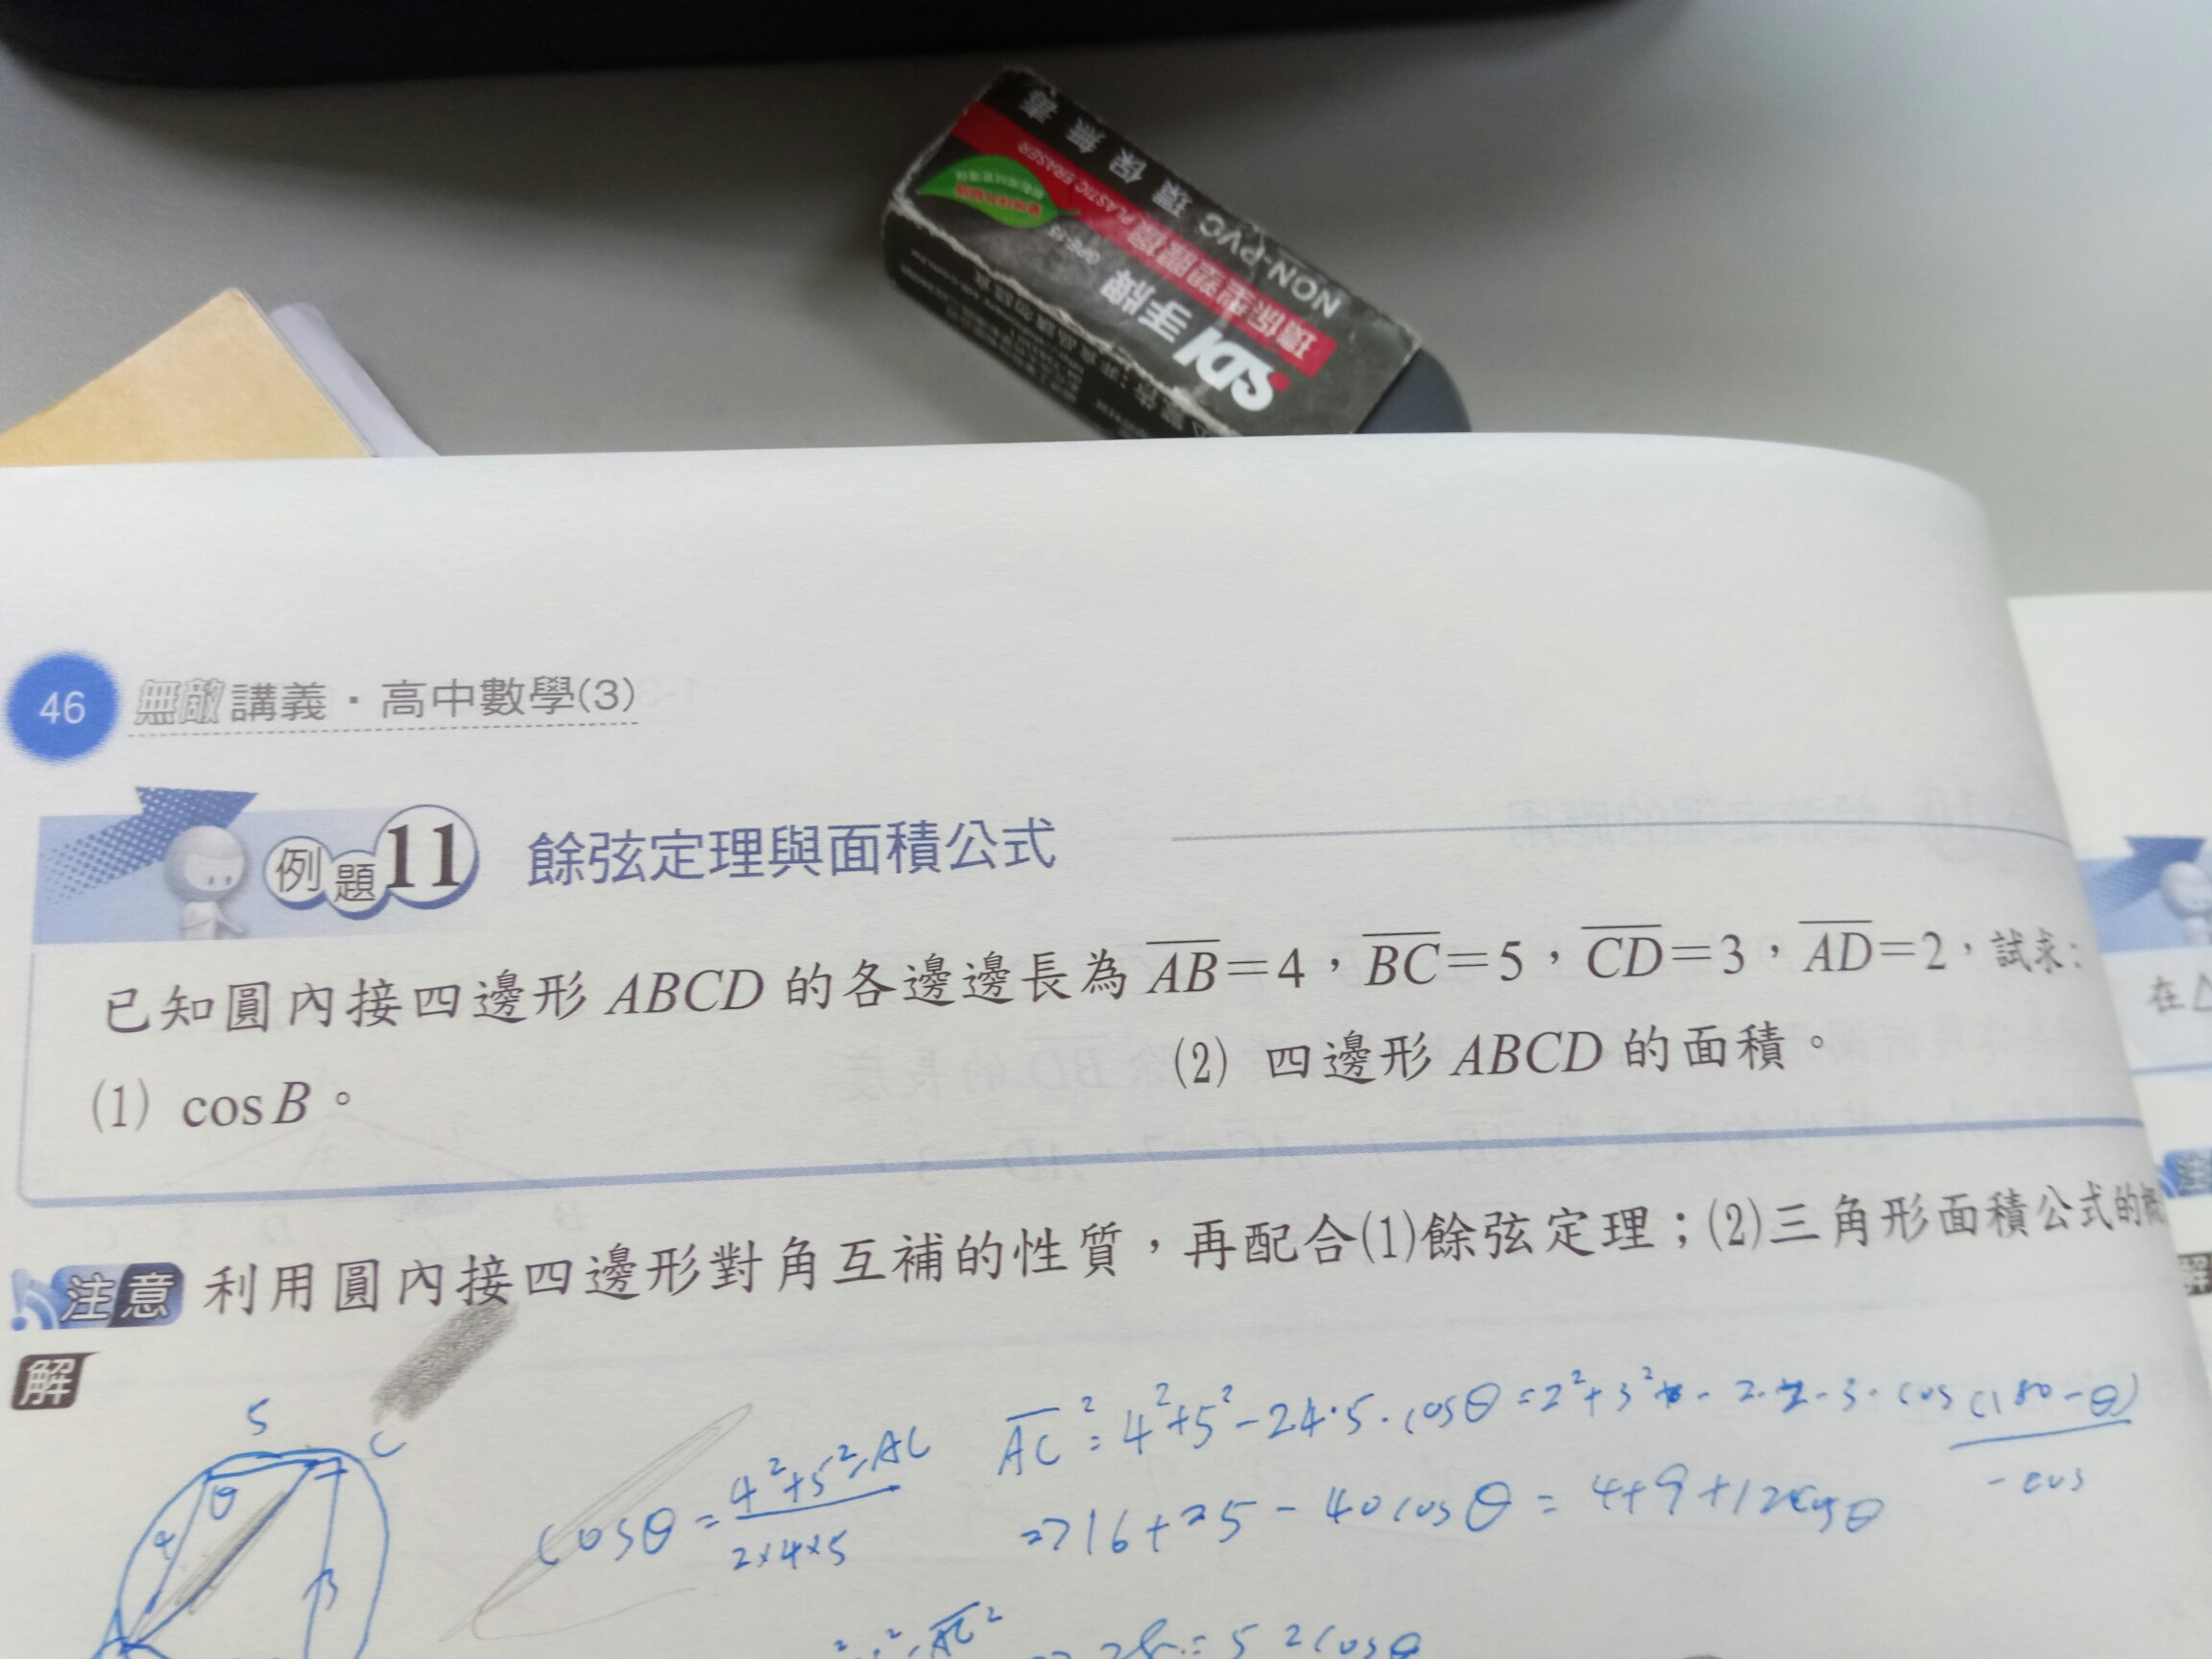 無毒
環保
NON-PVC
環保型塑膠擦 PLASTIC ERASER
SDI 手牌
46
無敵講義・高中數學(3)
例題11 餘弦定理與面積公式
已知圓內接四邊形 ABCD 的各邊邊長為 AB=4，BC=5，CD=3，AD=2，試求：
(1) cosB。
(2) 四邊形 ABCD 的面積。
注意 利用圓內接四邊形對角互補的性質，再配合(1)餘弦定理；(2)三角形面積公式的概
解
5
C
θ
4
3
A
cosθ = 4²+5²-AC
2×4×5
AC² = 4²+5²-24·5·cosθ = 2²+3² - 2·2·3·cos(180-θ)
-cos
=> 16+25-40cosθ = 4+9+12cosθ
AC²
28 = 52cosθ
在△
注
解